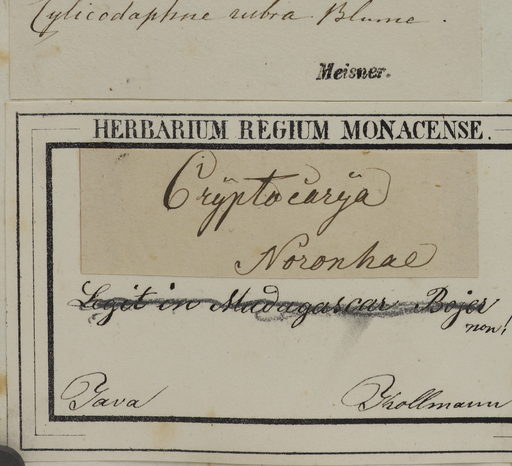 Cylicodaphne rubra Blume.
Meisner.
HERBARIUM REGIUM MONACENSE.
Crÿptocarÿa
Noronhae
Legit in Madagascar Bojer
non!
Java
Kollmann